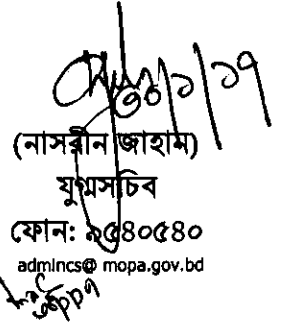 ৩০/১/১৭
(নাসরীন জাহান)
যুগ্মসচিব
ফোন: ৯৫৪০৫৪০
admincs@ mopa.gov.bd